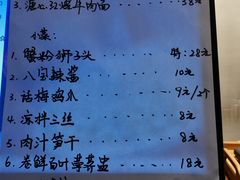 3. 溏心红烧牛肉面 …… 38元
小菜:
1. 蟹粉狮子头 …… 特:28元
2. 八宝辣酱 …… 10元
3. 话梅鸡爪 …… 9元/2个
4. 凉拌三丝 …… 8元
5. 肉汁笋干 …… 8元
6. 卷鲜百叶 …… 18元